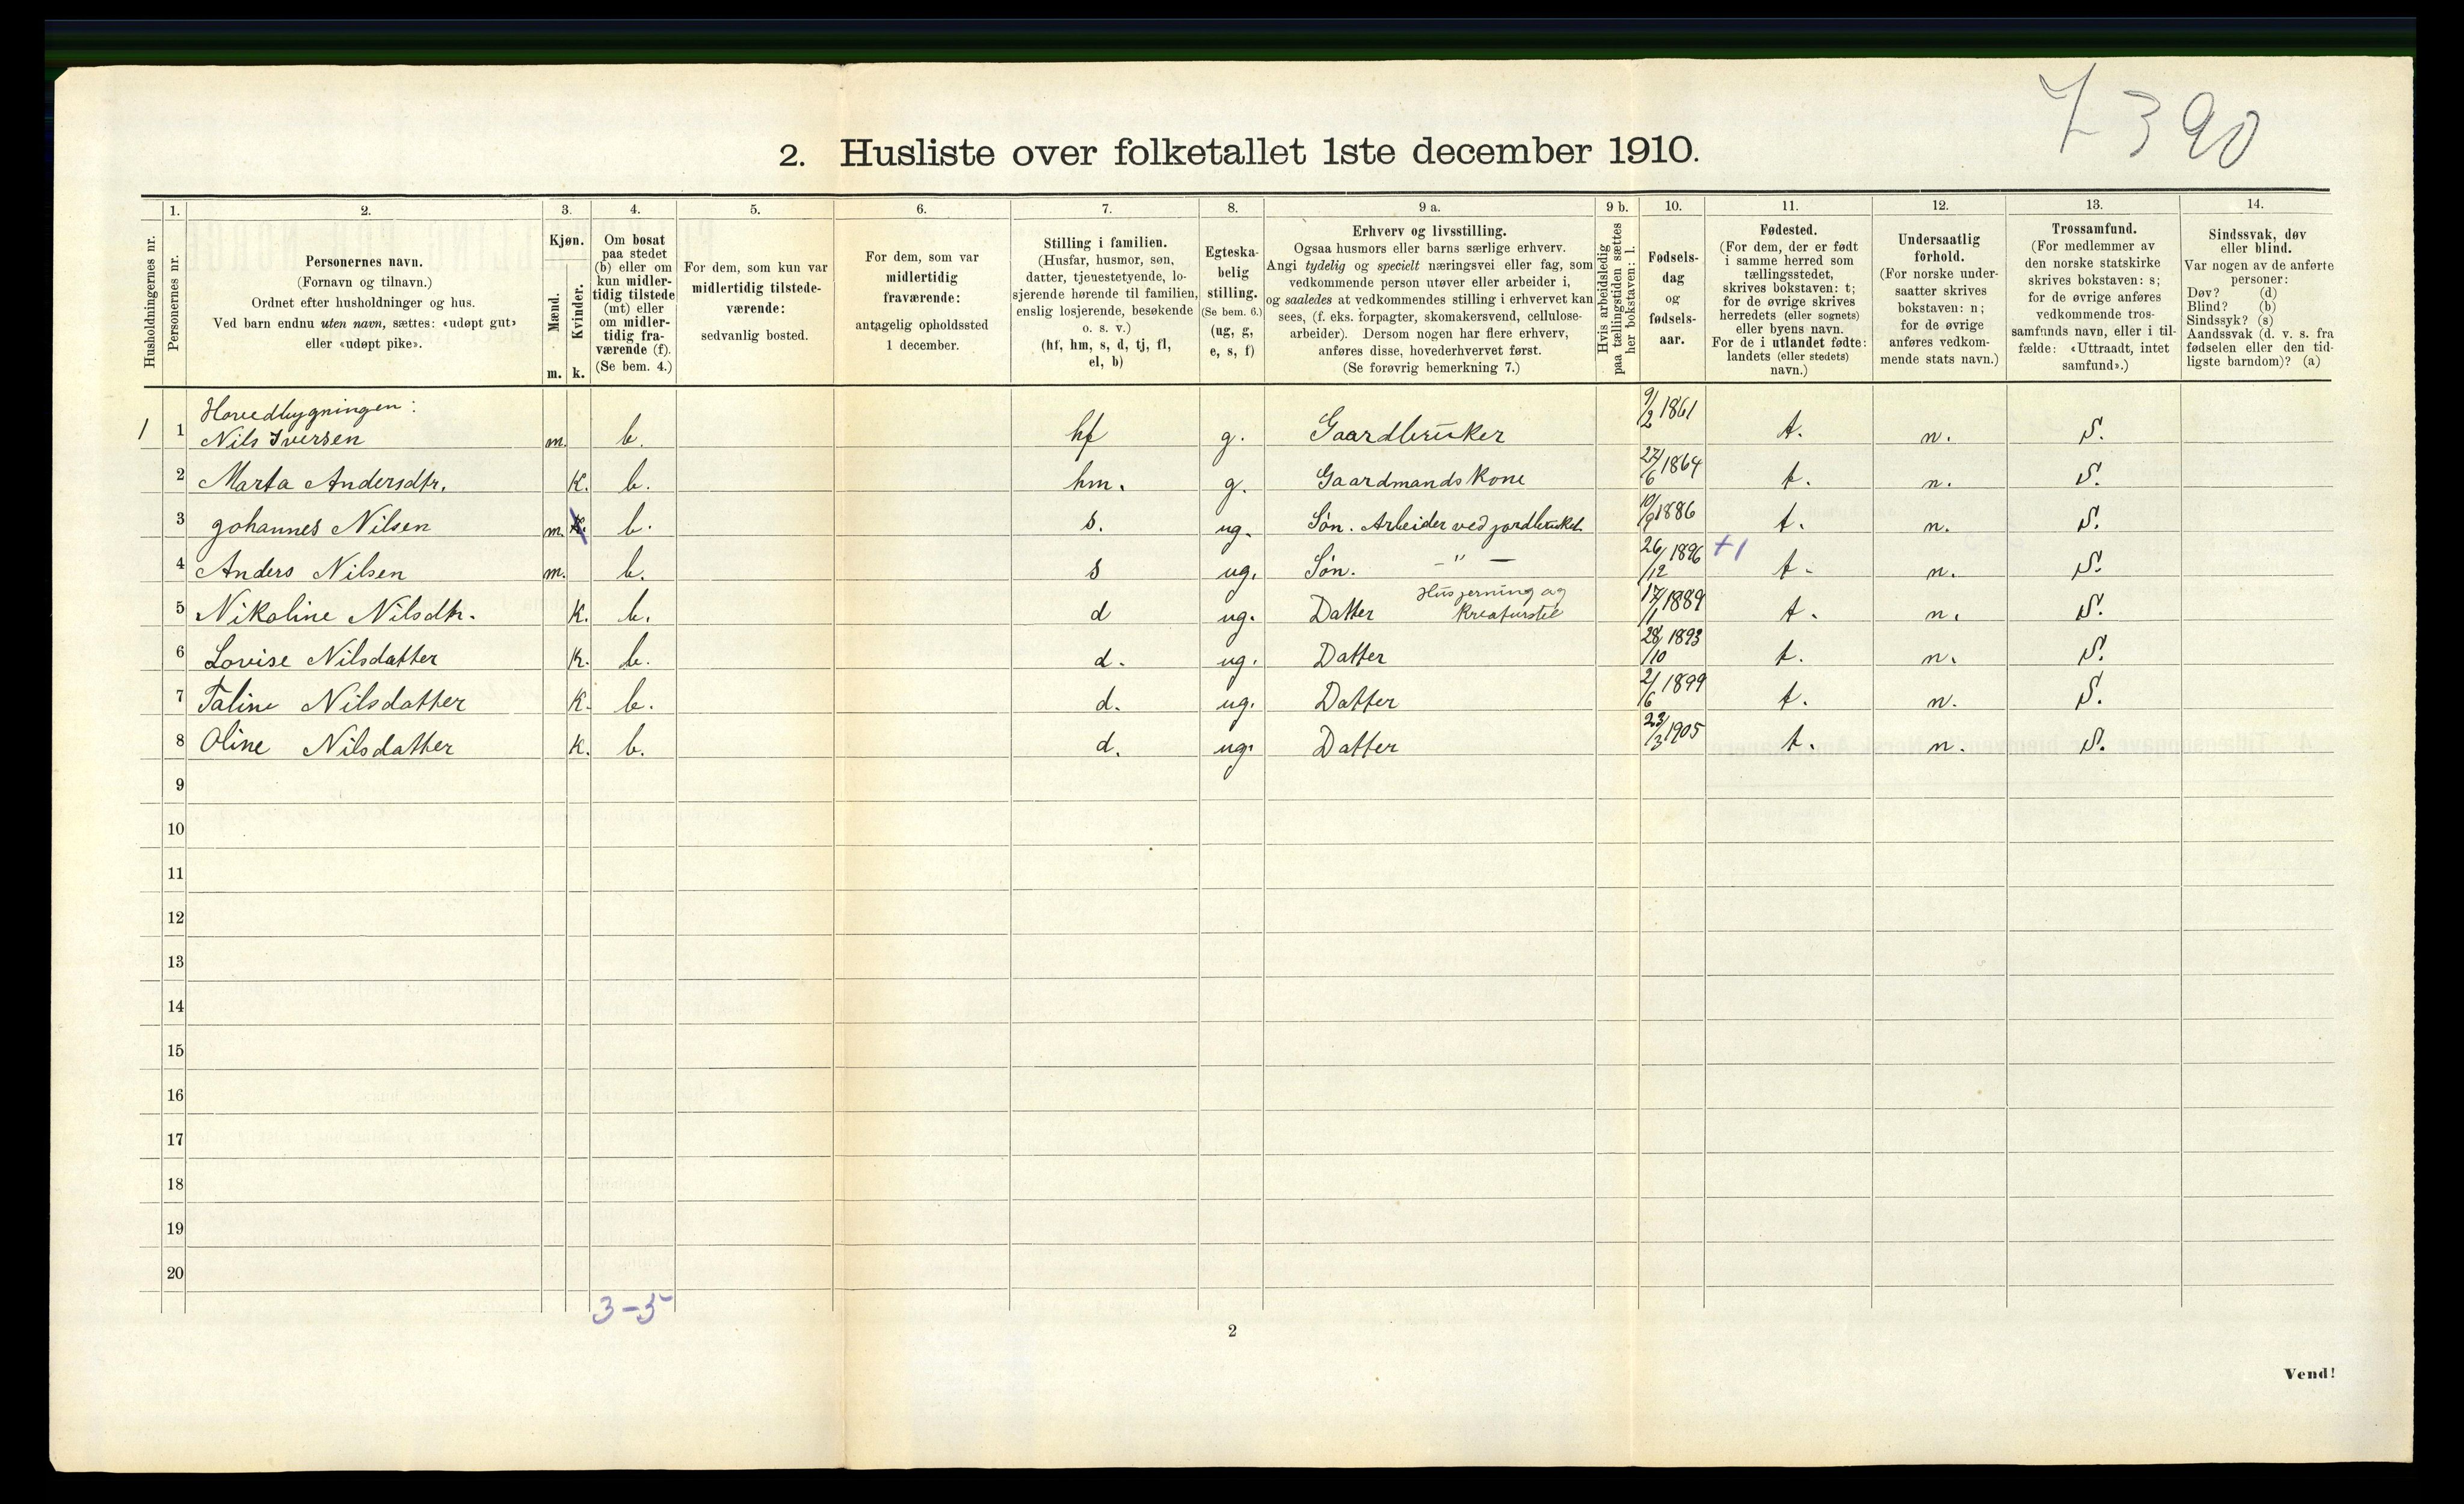 7 390
2. Husliste over folketallet 1ste december 1910.
Husholdningernes nr.
1.
Personernes nr.
2.
Personernes navn.
(Fornavn og tilnavn.)
Ordnet efter husholdninger og hus.
Ved barn endnu uten navn, sættes: «udøpt gut»
eller «udøpt pike».
3.
Kjøn.
Mænd.
Kvinder.
m. k.
4.
Om bosat
paa stedet
(b) eller om
kun midler-
tidig tilstede
(mt) eller
om midler-
tidig fra-
værende (f).
(Se bem. 4.)
5.
For dem, som kun var
midlertidig tilstede-
værende:
sedvanlig bosted.
6.
For dem, som var
midlertidig
fraværende:
antagelig opholdssted
1 december.
7.
Stilling i familien.
(Husfar, husmor, søn,
datter, tjenestetyende, lo-
sjerende hørende til familien,
enslig losjerende, besøkende
o. s. v.)
(hf, hm, s, d, tj, fl,
el, b)
8.
Egteska-
belig
stilling.
(Se bem. 6.)
(ug, g,
e, s, f)
9 a.
Erhverv og livsstilling.
Ogsaa husmors eller barns særlige erhverv.
Angi tydelig og specielt næringsvei eller fag, som
vedkommende person utøver eller arbeider i,
og saaledes at vedkommendes stilling i erhvervet kan
sees, (f. eks. forpagter, skomakersvend, cellulose-
arbeider). Dersom nogen har flere erhverv,
anføres disse, hovederhvervet først.
(Se forøvrig bemerkning 7.)
9 b.
Hvis arbeidsledig
paa tællingstiden sættes
her bokstaven: l.
10.
Fødsels-
dag
og
fødsels-
aar.
11.
Fødested.
(For dem, der er født
i samme herred som
tællingsstedet,
skrives bokstaven: t;
for de øvrige skrives
herredets (eller sognets)
eller byens navn.
For de i utlandet fødte:
landets (eller stedets)
navn.)
12.
Undersaatlig
forhold.
(For norske under-
saatter skrives
bokstaven: n;
for de øvrige
anføres vedkom-
mende stats navn.)
13.
Trossamfund.
(For medlemmer av
den norske statskirke
skrives bokstaven: s;
for de øvrige anføres
vedkommende tros-
samfunds navn, eller i til-
fælde: «Uttraadt, intet
samfund».)
14.
Sindssvak, døv
eller blind.
Var nogen av de anførte
personer:
Døv? (d)
Blind? (b)
Sindssyk? (s)
Aandssvak (d. v. s. fra
fødselen eller den tid-
ligste barndom)? (a)
Hovedbygningen:
1 1 Nils Iversen m. b. hf g. Gaardbruker 9/2 1861 t. n. S.
2 Marta Andersdtr. K. b. hm. g. Gaardmandskone 27/6 1864 t. n. S.
3 Johannes Nilsen m. K. b. s. ug. Søn. Arbeider ved jordbruket 10/9 1886 t. n. S.
4 Anders Nilsen m. b. s ug. Søn. - " - 26/12 1896 +1 t. n. S.
5 Nikoline Nilsdtr. K. b. d ug. Datter Husgerning og kreaturstel 17/1 1889 t. n. S.
6 Lovise Nilsdatter K. b. d. ug. Datter 28/10 1893 t. n. S.
7 Taline Nilsdatter K. b. d. ug. Datter 2/6 1899 t. n. S.
8 Oline Nilsdatter K. b. d. ug. Datter 23/3 1905 t. n. S.
9
10
11
12
13
14
15
16
17
18
19
20
3-5
2
Vend!